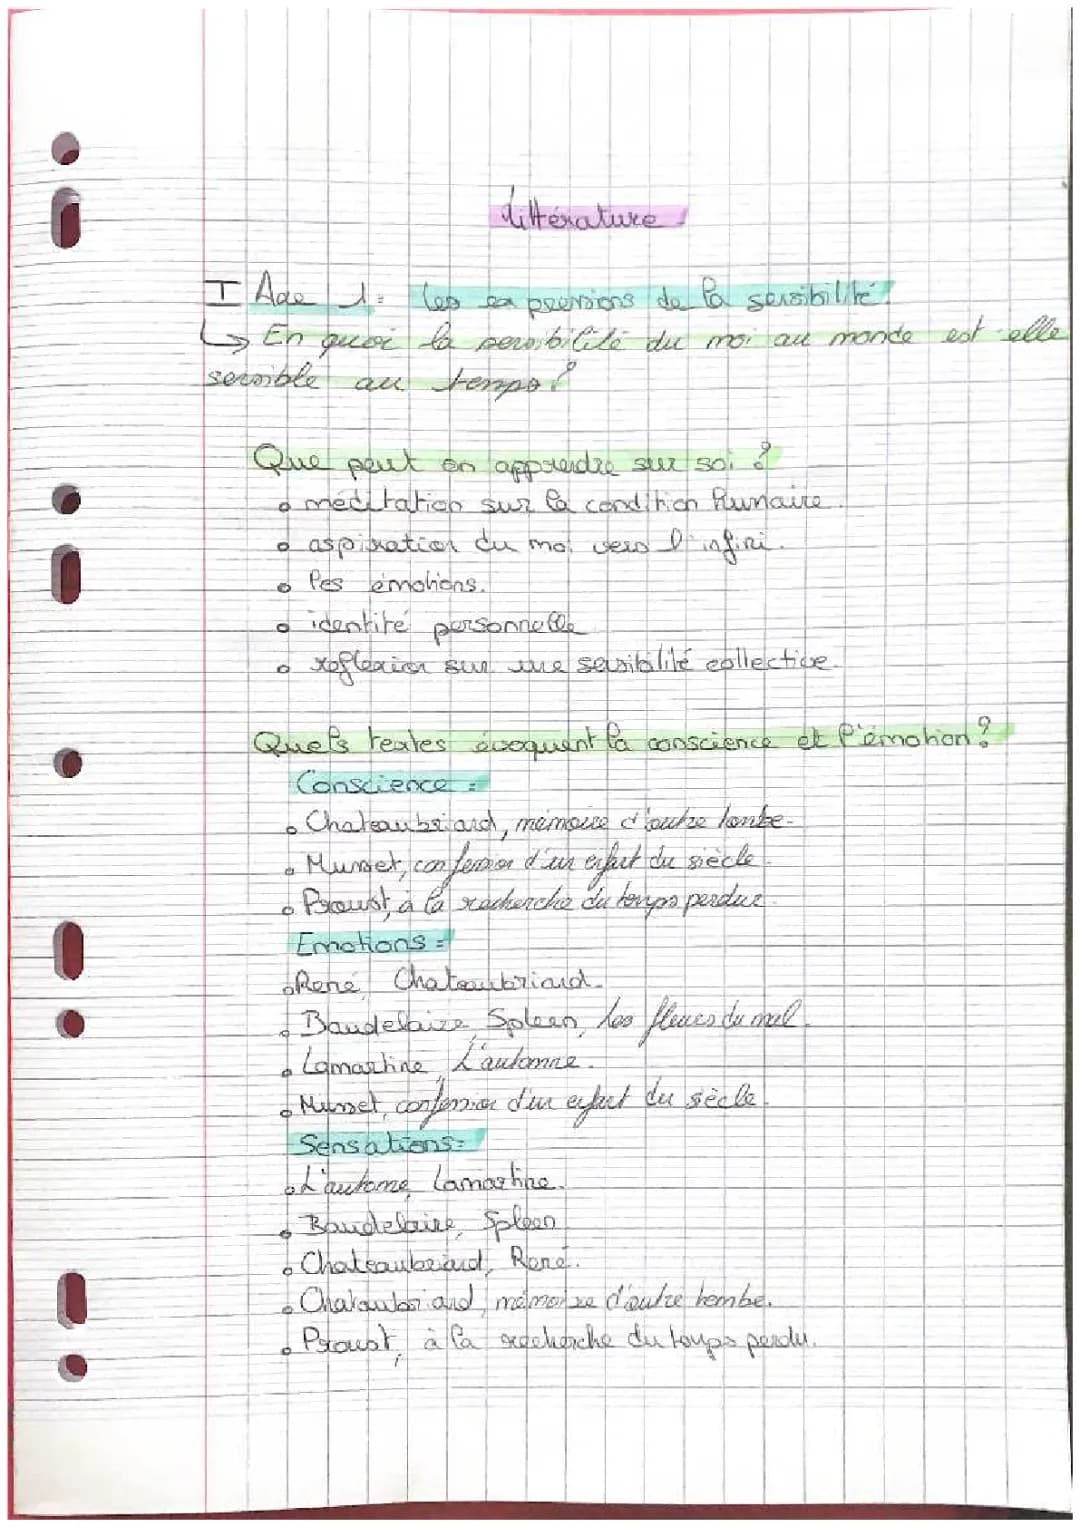 Littérature
I Axe 1: Les expressions de la sensibilité.
↳ En quoi la sensibilité du moi au monde est-elle
sensible au temps?
Que peut on apprendre sur soi ?
• méditation sur la condition humaine.
• aspiration du moi vers l'infini.
• les émotions.
• identité personnelle
• réflexion sur une sensibilité collective.
Quels textes évoquent la conscience et l'émotion?
Conscience :
• Chateaubriand, mémoire d'outre tombe.
• Musset, confession d'un enfant du siècle.
• Proust, à la recherche du temps perdu.
Emotions :
• René, Chateaubriand.
• Baudelaire, Spleen, Les fleurs du mal.
• Lamartine, L'automne.
• Musset, confession d'un enfant du siècle.
Sensations:
• L'automne, Lamartine.
• Baudelaire, Spleen
• Chateaubriand, René.
• Chateaubriand, mémoire d'outre tombe.
• Proust, à la recherche du temps perdu.